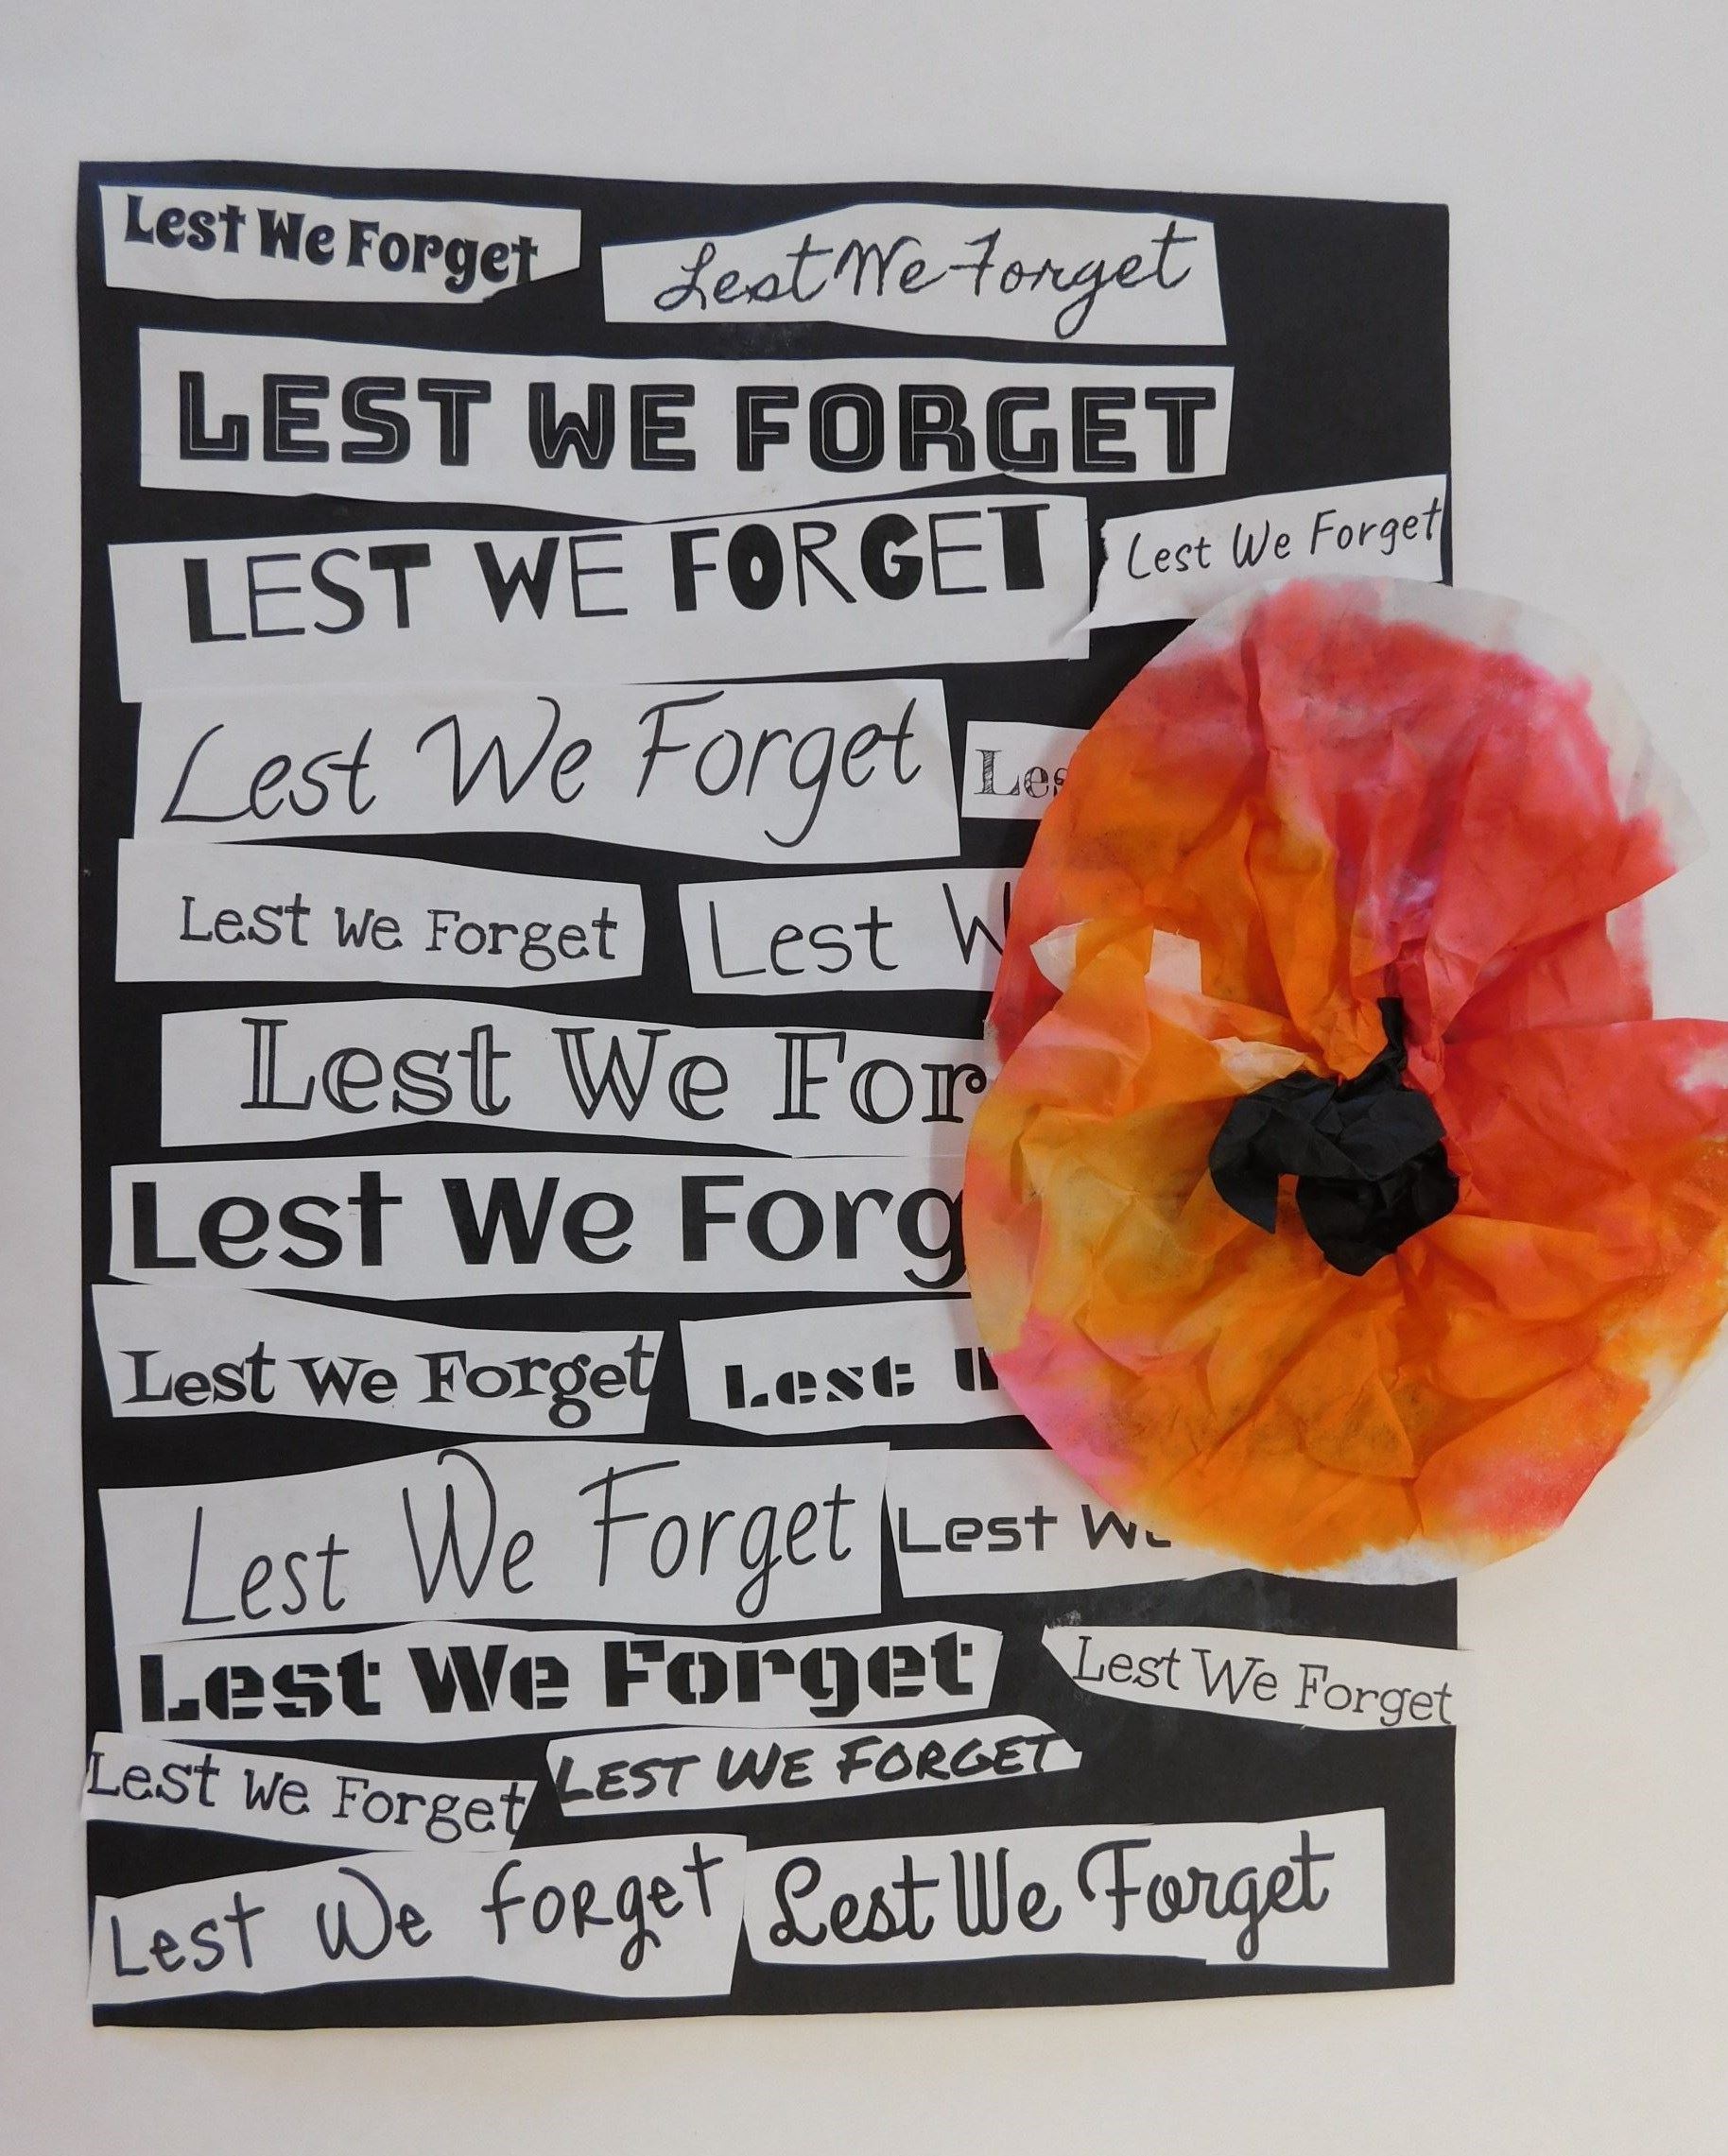 Lest We Forget
Lest We Forget
LEST WE FORGET
LEST WE FORGET
Lest We Forget
Lest We Forget
Les
Lest We Forget
Lest W
Lest We For
Lest We Forg
Lest We Forget
Lest W
Lest We Forget
Lest We
Lest We Forget
Lest We Forget
Lest We Forget
LEST WE FORGET
Lest We forget
Lest We Forget